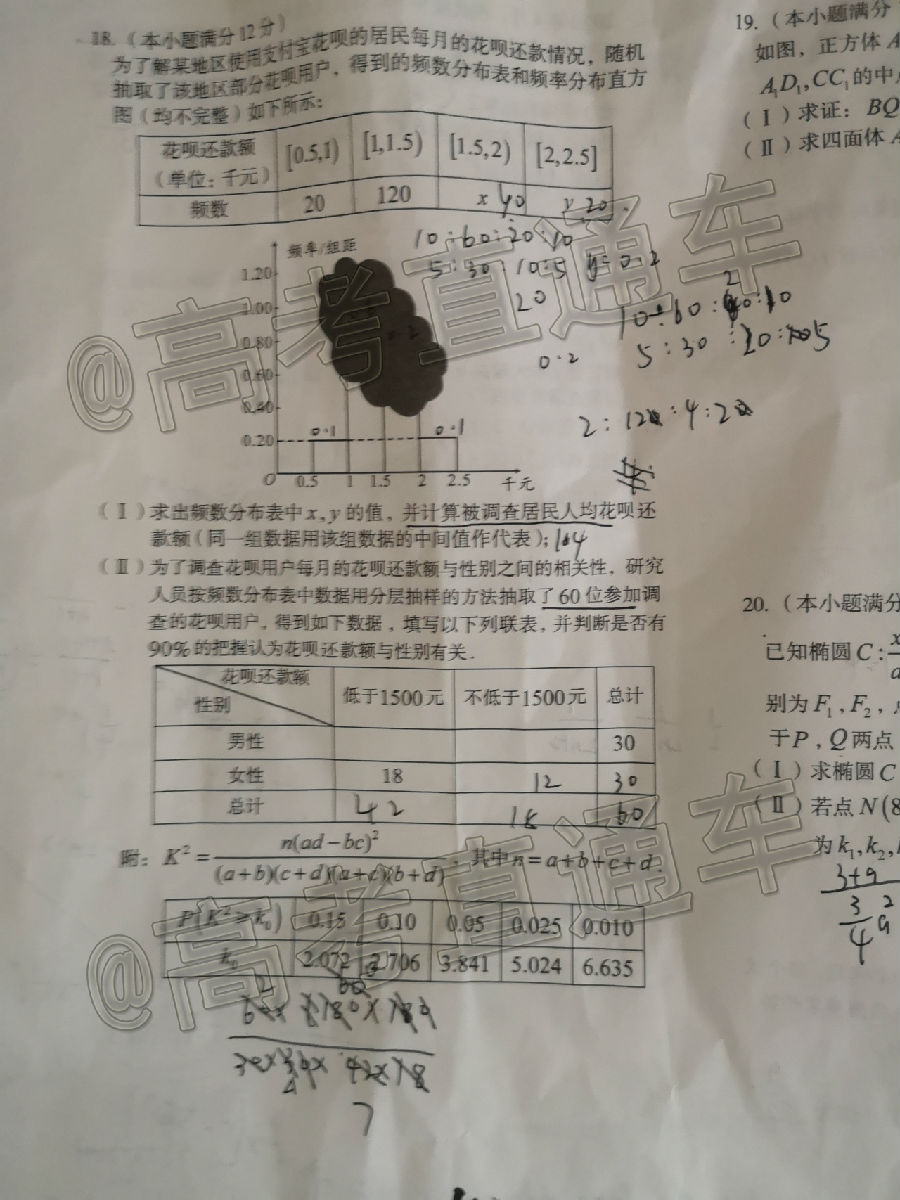 18.（本小题满分12分）
为了解某地区使用支付宝花呗的居民每月的花呗还款情况，随机
抽取了该地区部分花呗用户，得到的频数分布表和频率分布直方
图（均不完整）如下所示：
花呗还款额（单位：千元） [0.5,1) [1,1.5) [1.5,2) [2,2.5]
频数 20 120 x 40 y 20
10:60:20:10
5:30:10:5 y=0.2
20
0.2
5:30
频率/组距
1.20
1.00
0.80
0.60
0.40
0.20
0.1 0.1
O 0.5 1 1.5 2 2.5 千元
（Ⅰ）求出频数分布表中x,y的值，并计算被调查居民人均花呗还
款额（同一组数据用该组数据的中间值作代表）；
（Ⅱ）为了调查花呗用户每月的花呗还款额与性别之间的相关性，研究
人员按频数分布表中数据用分层抽样的方法抽取了60位参加调
查的花呗用户，得到如下数据，填写以下列联表，并判断是否有
90%的把握认为花呗还款额与性别有关.
花呗还款额 性别 低于1500元 不低于1500元 总计
男性 30
女性 18 12 30
总计 42 18 60
附：K²=n(ad-bc)²/(a+b)(c+d)(a+c)(b+d)，其中n=a+b+c+d.
P(K²≥k₀) 0.15 0.10 0.05 0.025 0.010
k₀ 2.072 2.706 3.841 5.024 6.635
7
19.（本小题满分
如图，正方体A
A₁D₁,CC₁的中点
（Ⅰ）求证：BQ
（Ⅱ）求四面体A
20.（本小题满分
已知椭圆C:x
a
别为F₁,F₂，
于P,Q两点
（Ⅰ）求椭圆C
（Ⅱ）若点N(8
为k₁,k₂,
3+a
3/4 a²
@高考直通车
@高考直通车